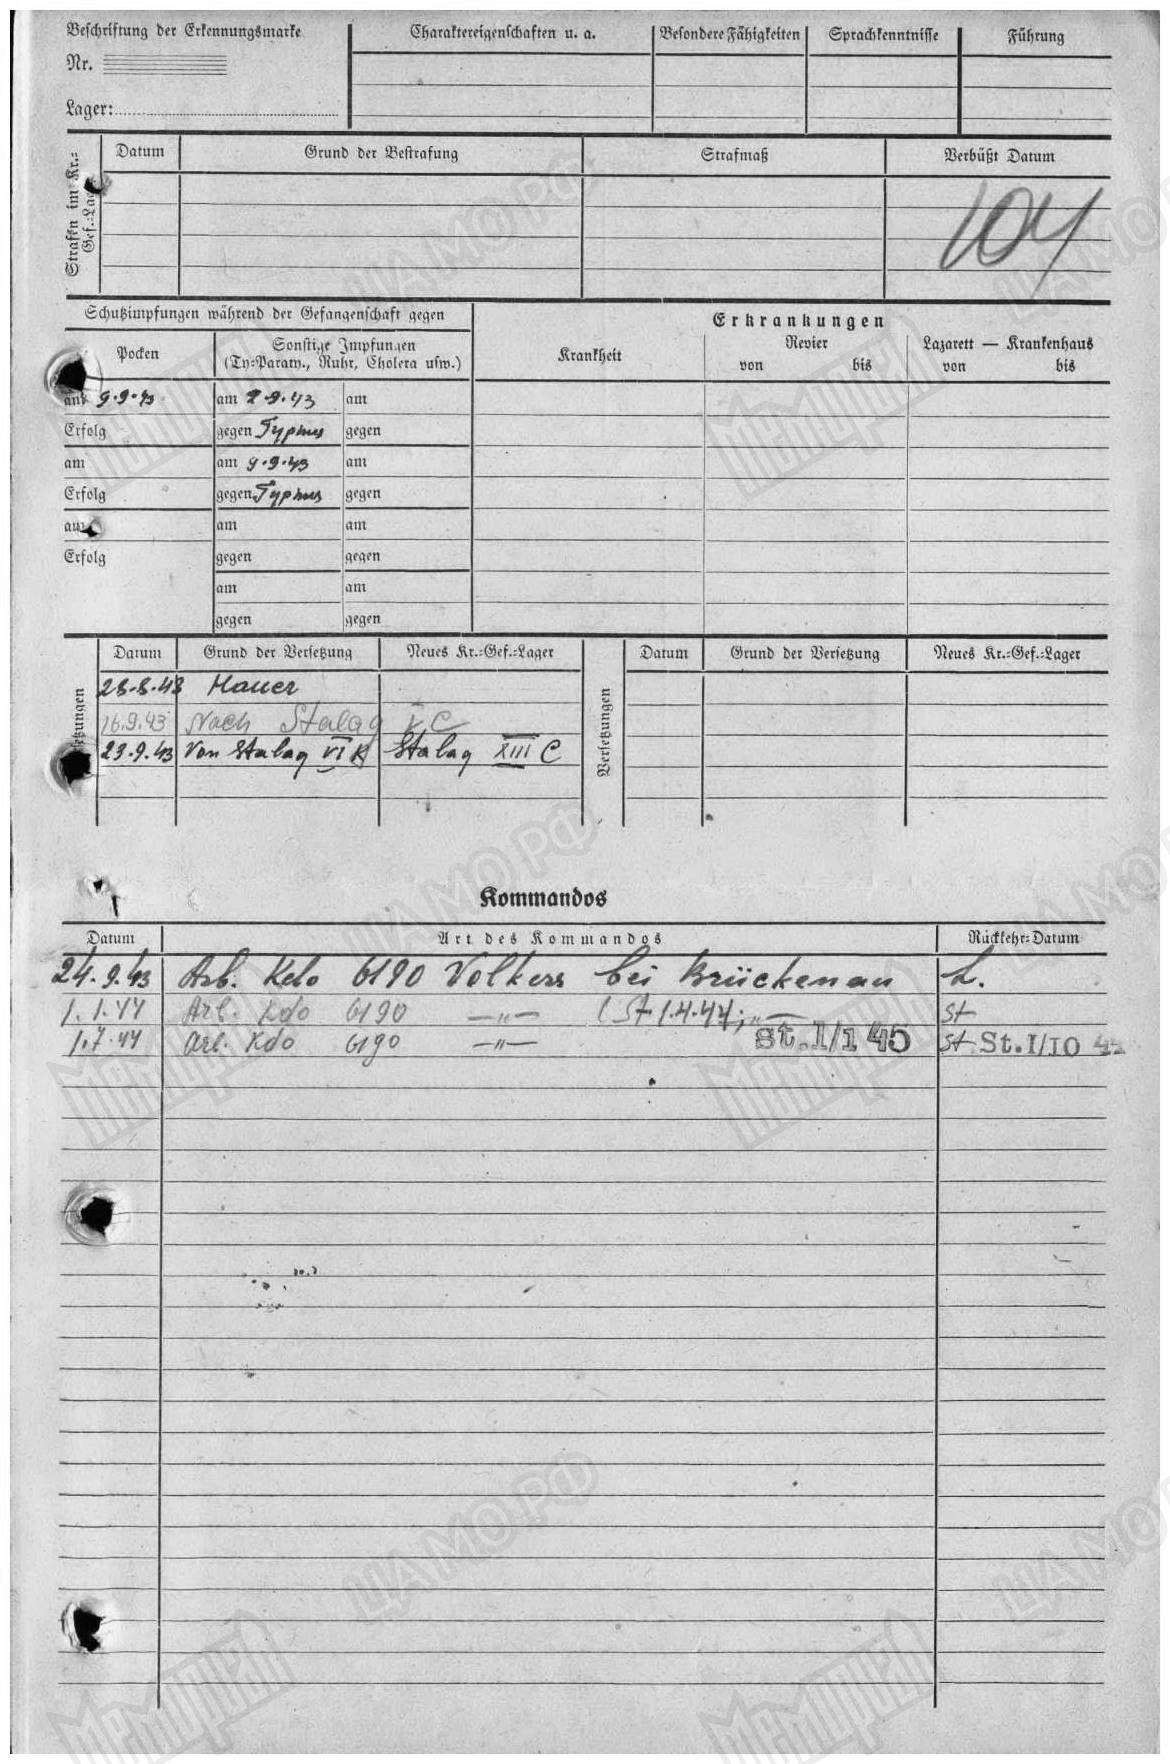 Beschriftung der Erkennungsmarke
Nr.
Lager:
Charaktereigenschaften u. a.
Besondere Fähigkeiten
Sprachkenntnisse
Führung
Strafen im Kr.-Gef.-Lager
Datum
Grund der Bestrafung
Strafmaß
Verbüßt Datum
104
Schutzimpfungen während der Gefangenschaft gegen
Pocken
Sonstige Impfungen
(Ty-Paraty., Ruhr, Cholera usw.)
am 9.9.43 am 2.9.43 am
Erfolg gegen Typhus gegen
am am 9.9.43 am
Erfolg gegen Typhus gegen
am am am
Erfolg gegen gegen
am am
gegen gegen
Erkrankungen
Krankheit
Revier
von bis
Lazarett — Krankenhaus
von bis
Datum Grund der Versetzung Neues Kr.-Gef.-Lager
28.8.43 Hauer
16.9.43 Nach Stalag C
23.9.43 Von Stalag VI K Stalag XIII C
Versetzungen
Datum Grund der Versetzung Neues Kr.-Gef.-Lager
Kommandos
Datum Art des Kommandos Rückkehr-Datum
24.9.43 Arb. Kdo 6190 Volkers bei Brückenau L.
1.1.44 Arb. Kdo 6190 —„— (St. 1.4.44; „— st
1.7.44 Arb. Kdo 6190 —„— St.1/1 45 st St.I/10
ЦАМО РФ
Мемориал